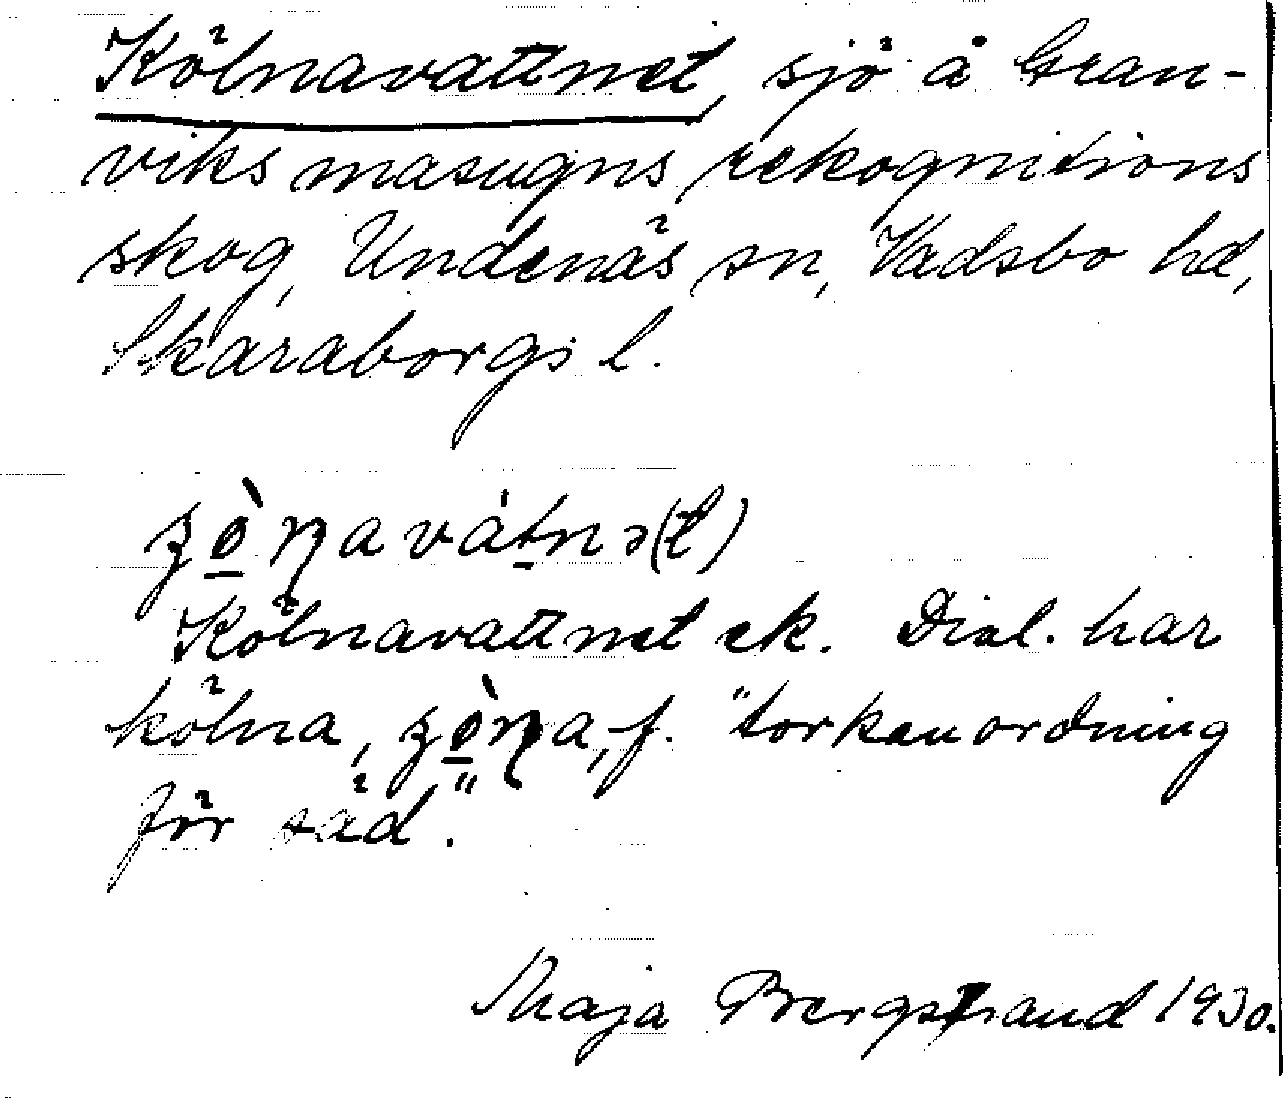 Kölnavattnet, sjö å Gran-
viks masugns rekognitions
skog, Undenäs sn, Vadsbo hd,
Skaraborgs l.
Kölnavattnet ek. Dial. har
kölna, f. "torkanordning
för säd."
Maja Bergstrand 1930.